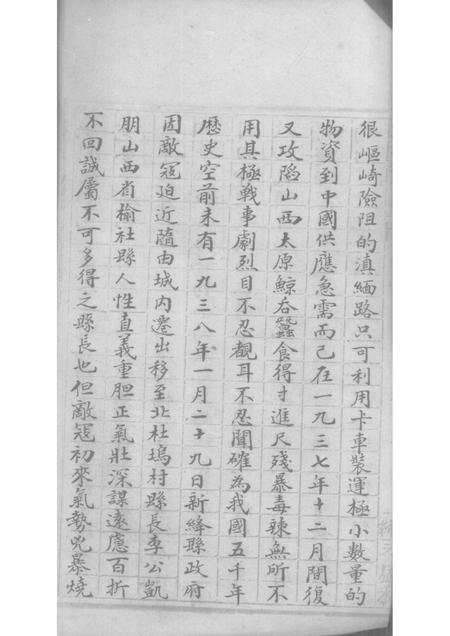 很嶇崎險阻的滇緬路只可利用卡車裝運極小數量的
物資到中國供應急需而已在一九三七年十二月間復
又攻陷山西太原鯨吞蠶食得寸進尺殘暴毒辣無所不
用其極戰事劇烈目不忍覩耳不忍聞確為我國五千年
歷史空前未有一九三八年一月二十九日新絳縣政府
因敵寇迫近隨由城內遷出移至北杜塢村縣長李公凱
朋山西省榆社縣人性直義重胆正氣壯深謀遠慮百折
不回誠屬不可多得之縣長也但敵寇初來氣勢兇暴燒